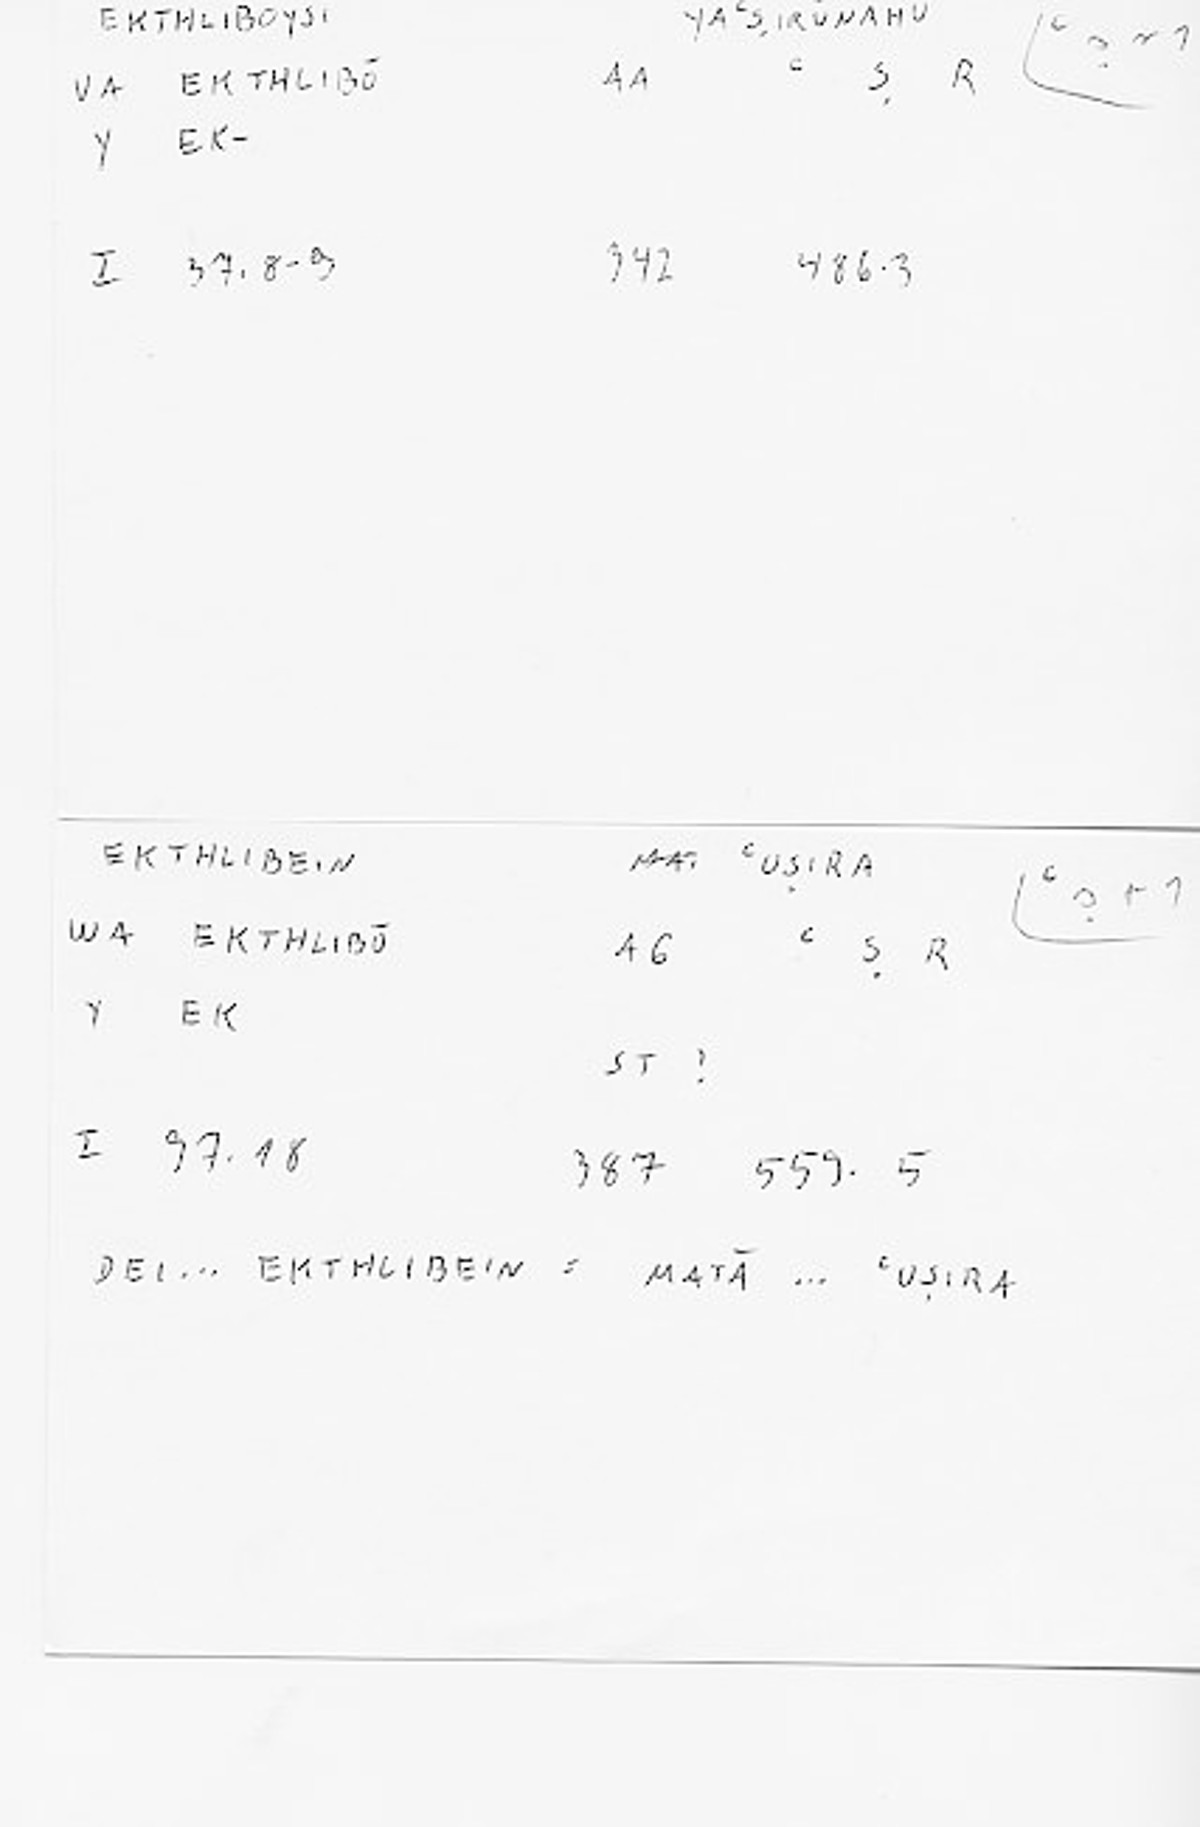 EKTHLIBOYSI YAʿṢIRŪNAHU
VA EKTHLIBŌ AA ʿ Ṣ R
Y EK-
I 37.8-9 342 486.3
EKTHLIBEIN MAT ʿUṢIRA
WA EKTHLIBŌ A6 ʿ Ṣ R
Y EK
ST ?
I 97.18 387 559. 5
DEI... EKTHLIBEIN = MATĀ ... ʿUṢIRA